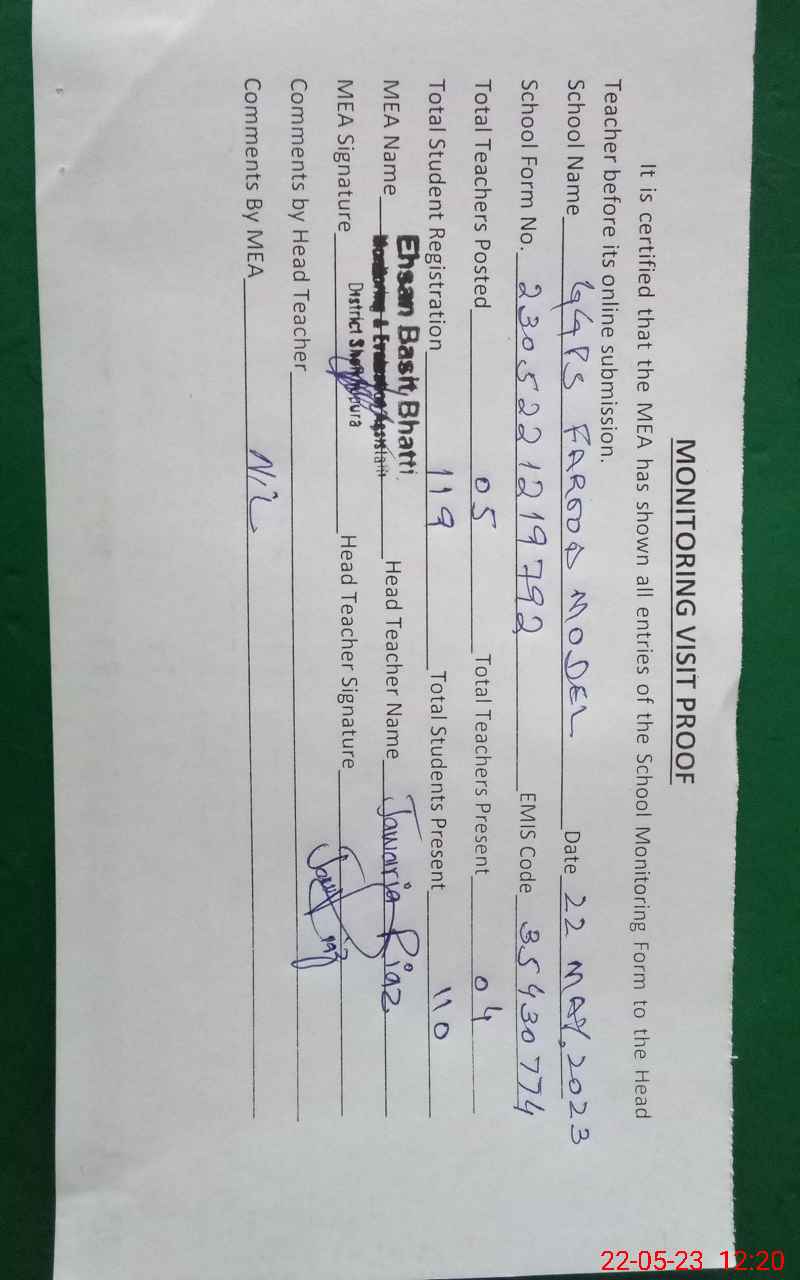 MONITORING VISIT PROOF
It is certified that the MEA has shown all entries of the School Monitoring Form to the Head
Teacher before its online submission.
School Name GGPS FAROOQ MODEL Date 22 MAY, 2023
School Form No. 2305221219792 EMIS Code 35430774
Total Teachers Posted 05 Total Teachers Present 04
Total Student Registration 119 Total Students Present 110
Ehsan Basit Bhatti
MEA Name Monitoring & Evaluation Assistant Head Teacher Name Jawaria Riaz
District Sheikhupura
MEA Signature Head Teacher Signature
Comments by Head Teacher
Comments By MEA Nil
22-05-23 12:20